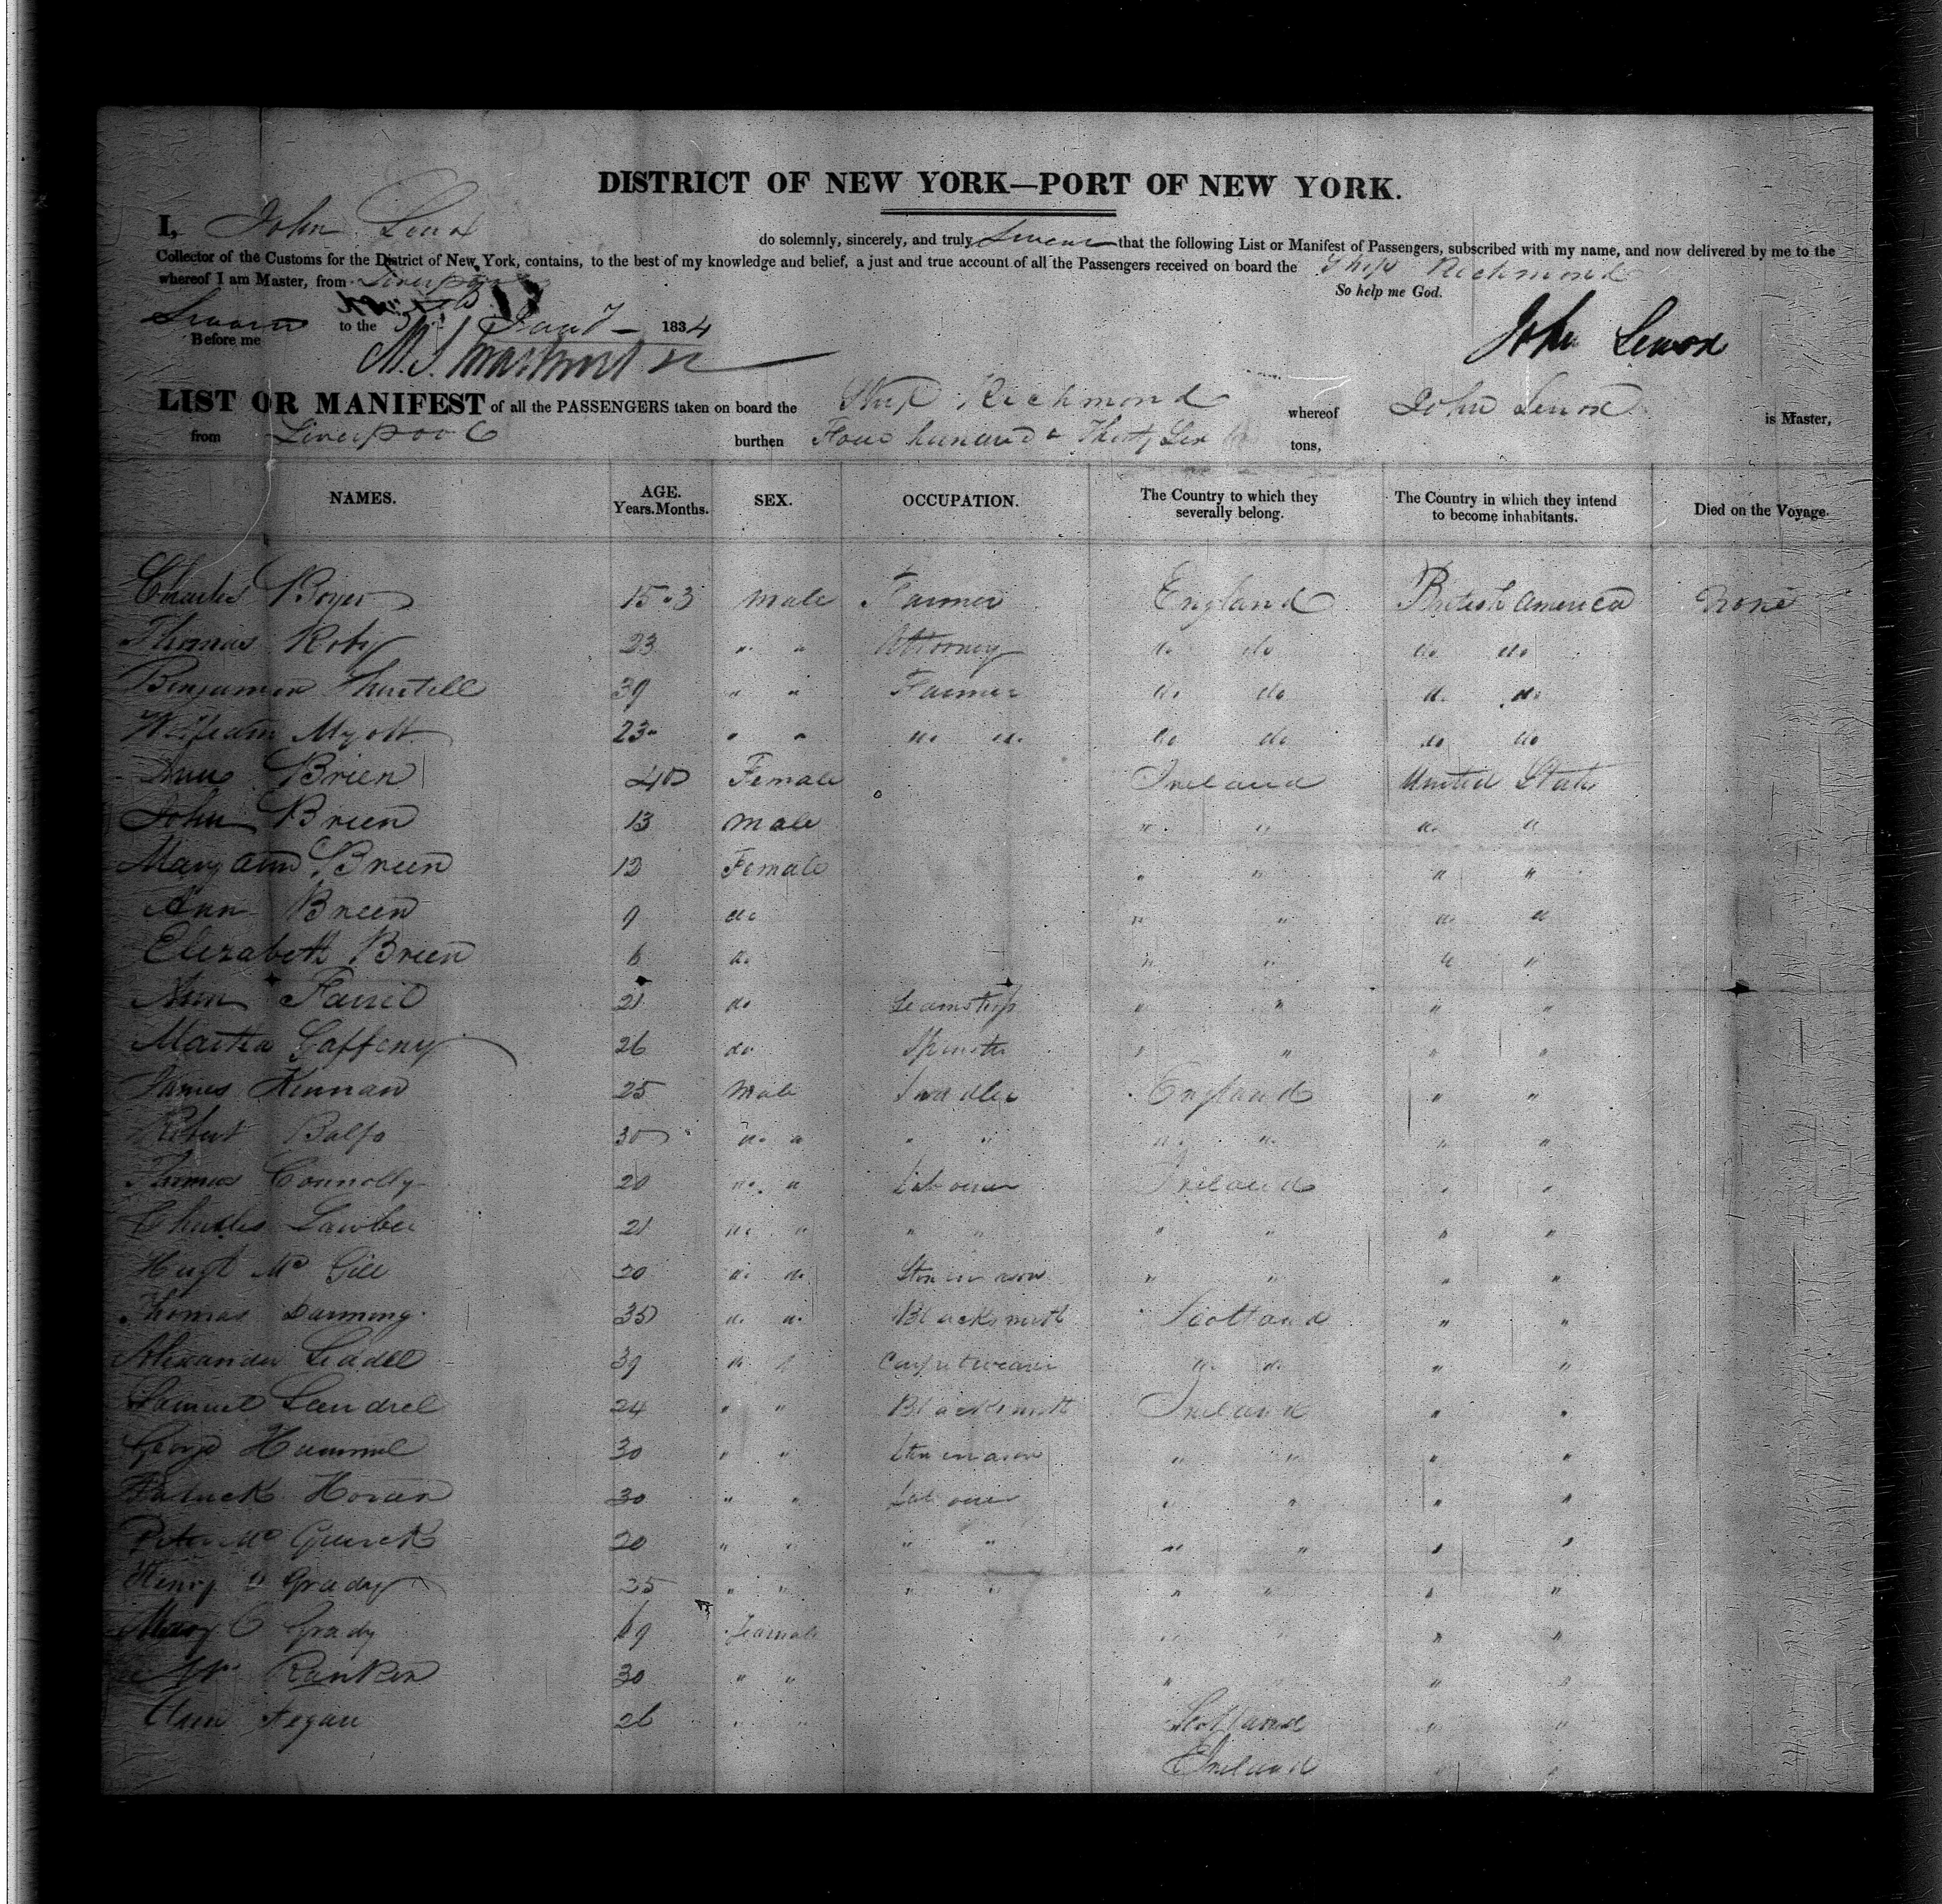 DISTRICT OF NEW YORK—PORT OF NEW YORK.
I, John Lenox do solemnly, sincerely, and truly Swear that the following List or Manifest of Passengers, subscribed with my name, and now delivered by me to the
Collector of the Customs for the District of New York, contains, to the best of my knowledge and belief, a just and true account of all the Passengers received on board the Ship Richmond
whereof I am Master, from Liverpool
So help me God.
Sworn to the Jany 1834
Before me
John Lenox
LIST OR MANIFEST of all the PASSENGERS taken on board the Ship Richmond whereof John Lenox is Master,
from Liverpool burthen Four hundred & Thirty Six tons,
NAMES. AGE. Years. Months. SEX. OCCUPATION. The Country to which they severally belong. The Country in which they intend to become inhabitants. Died on the Voyage.
Charles Boyer 15 . 3 Male Farmer England British America None
Thomas Roby 23 " " Attorney do do do do
Benjamin 39 " " Farmer do do do do
William Myott 23 " " do do do do do do
Ann Brien 40 Female Ireland United States
John Breen 13 Male " " " "
Mary Ann Breen 12 Female " " " "
Ann Breen 9 do " " " "
Elizabeth Breen 6 do " " " "
Ann 21 do Seamstress " " " "
Martha Gaffeny 26 do Spinster " " " "
James Kennan 25 Male England " "
Robert Balfe 30 " " " " " " " "
Connolly 20 " " Labourer Ireland " "
Charles 21 " " " " " " " "
Hugh Mc Gill 20 do do Stonemason " " " "
Thomas 35 do do Blacksmith Scotland " "
Alexander 39 do do Carpetweaver do do " "
Samuel 24 " " Blacksmith Ireland " "
George Hammel 30 " " Stonemason " " " "
Patrick Horan 30 " " Labourer " " " "
Peter Mc Guirk 20 " " " " " " " "
Henry O Grady 35 " " " " " " " "
Mary O Grady 19 Female " " " "
Rankin 30 " " " " " "
Ann Fegan 26 " " Scotland " "
Ireland " "